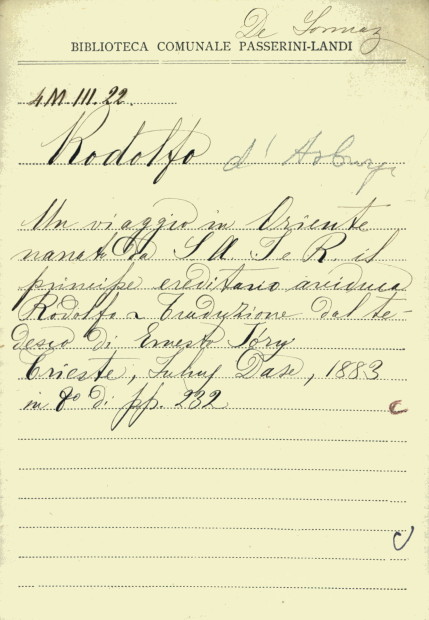 De
BIBLIOTECA COMUNALE PASSERINI-LANDI
4 M III. 22.
Rodolfo d' Asburg
Un viaggio in Oriente
narrato da S A I e R il
principe ereditario arciduca
Rodolfo ~ Traduzione dal te-
desco di Ernesto Töry
Trieste, Dase, 1883
in 8º di pp. 232